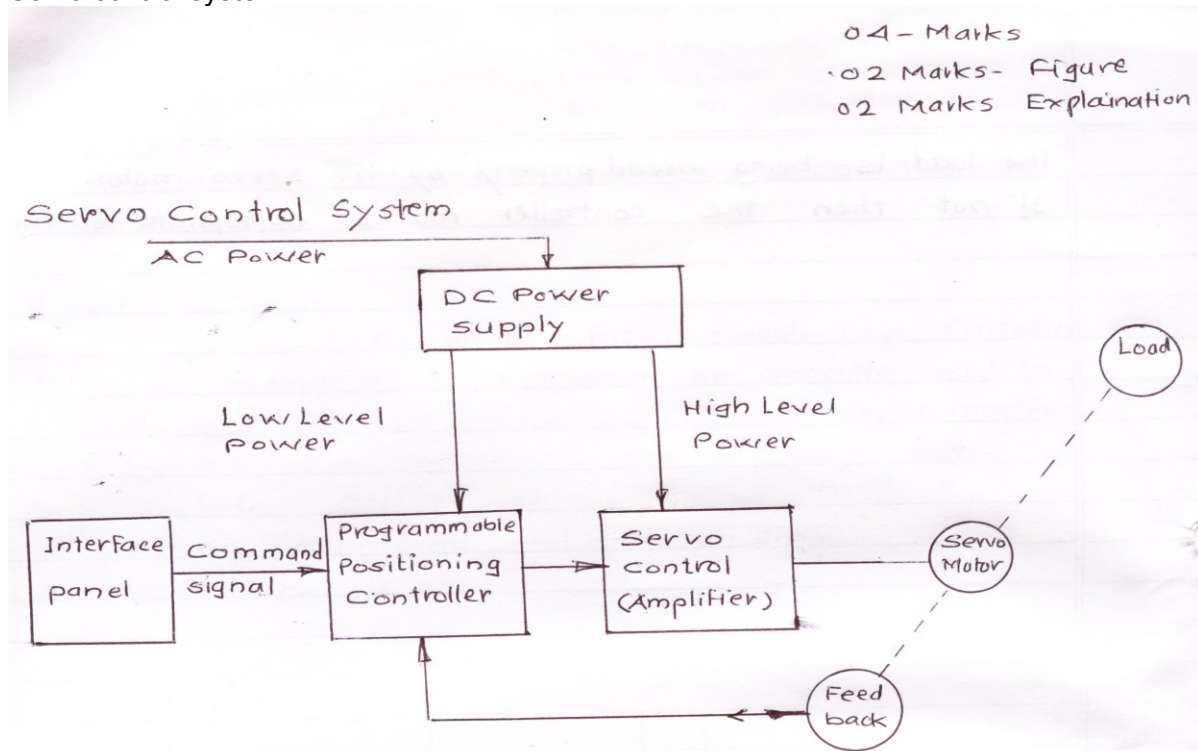 04 - Marks
02 Marks - Figure
02 Marks Explaination
Servo Control System
AC Power
DC Power
supply
Load
Low Level
Power
High Level
Power
Interface
panel
Command
signal
Programmable
Positioning
Controller
Servo
control
(Amplifier)
Servo
Motor
Feed
back